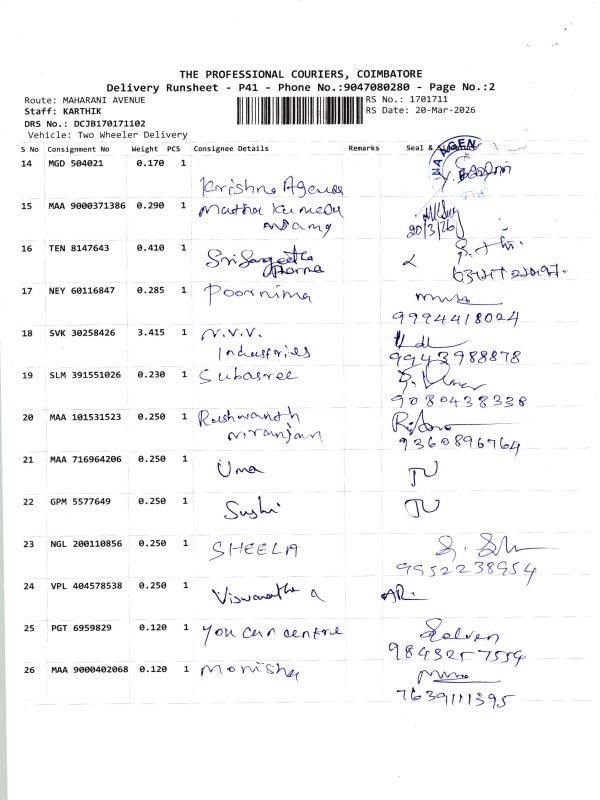 THE PROFESSIONAL COURIERS, COIMBATORE
Delivery Runsheet - P41 - Phone No.:9047080280 - Page No.:2
Route: MAHARANI AVENUE RS No.: 1701711
Staff: KARTHIK RS Date: 20-Mar-2026
DRS No.: DCJB170171102
Vehicle: Two Wheeler Delivery
S No Consignment No Weight PCS Consignee Details Remarks Seal & Signature
14 MGD 504021 0.170 1
Krishna Agency
15 MAA 9000371386 0.290 1 Matha
20/3/26
16 TEN 8147643 0.410 1
Sri Sangeetha
17 NEY 60116847 0.285 1 Poornima
9994418024
18 SVK 30258426 3.415 1 N.V.V.
Industries 9943988878
19 SLM 391551026 0.230 1 Subasree
9080438338
20 MAA 101531523 0.250 1 Rashwanth
niranjan 9360896764
21 MAA 716964206 0.250 1
Uma
22 GPM 5577649 0.250 1
Sushi
23 NGL 200110856 0.250 1
SHEELA
9952238954
24 VPL 404578538 0.250 1
Viswanatha
25 PGT 6959829 0.120 1 You can centre
9843257554
26 MAA 9000402068 0.120 1 Monisha
7639111395